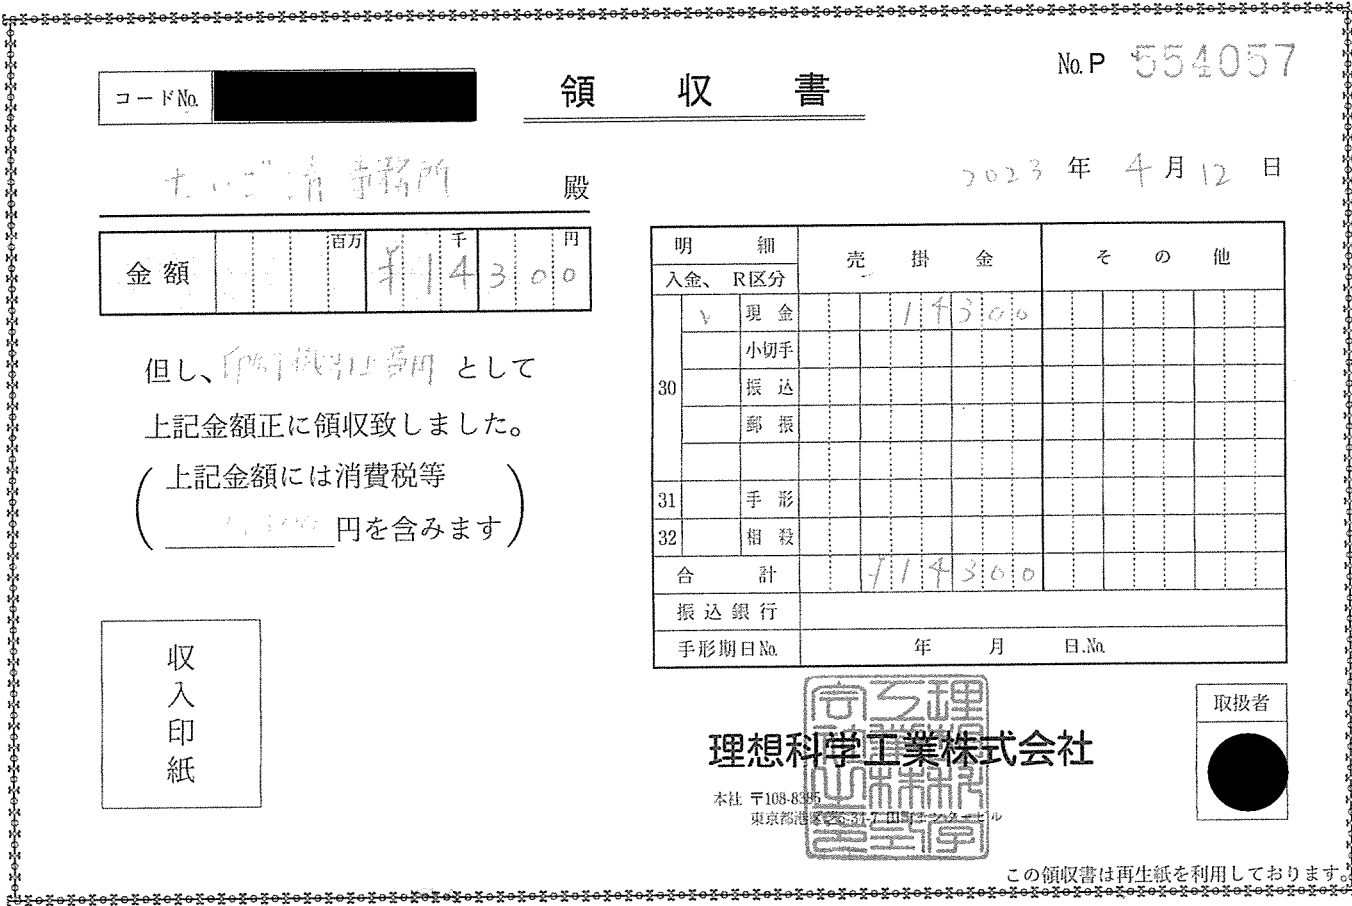 コードNo.
領収書
No. P 554057
2023年4月12日
事務所 殿
金額 百万 千 円
¥14300
但し、印刷機引取費用 として
上記金額正に領収致しました。
上記金額には消費税等
円を含みます
収入印紙
明細 売掛金 その他
入金、R区分
30 レ 現金 14300
小切手
振込
郵振
31 手形
32 相殺
合計 ¥14300
振込銀行
手形期日No. 年 月 日.No.
理想科学工業株式会社
本社 〒108-8385
東京都港区芝5-34-7 田町センタービル
取扱者
この領収書は再生紙を利用しております。